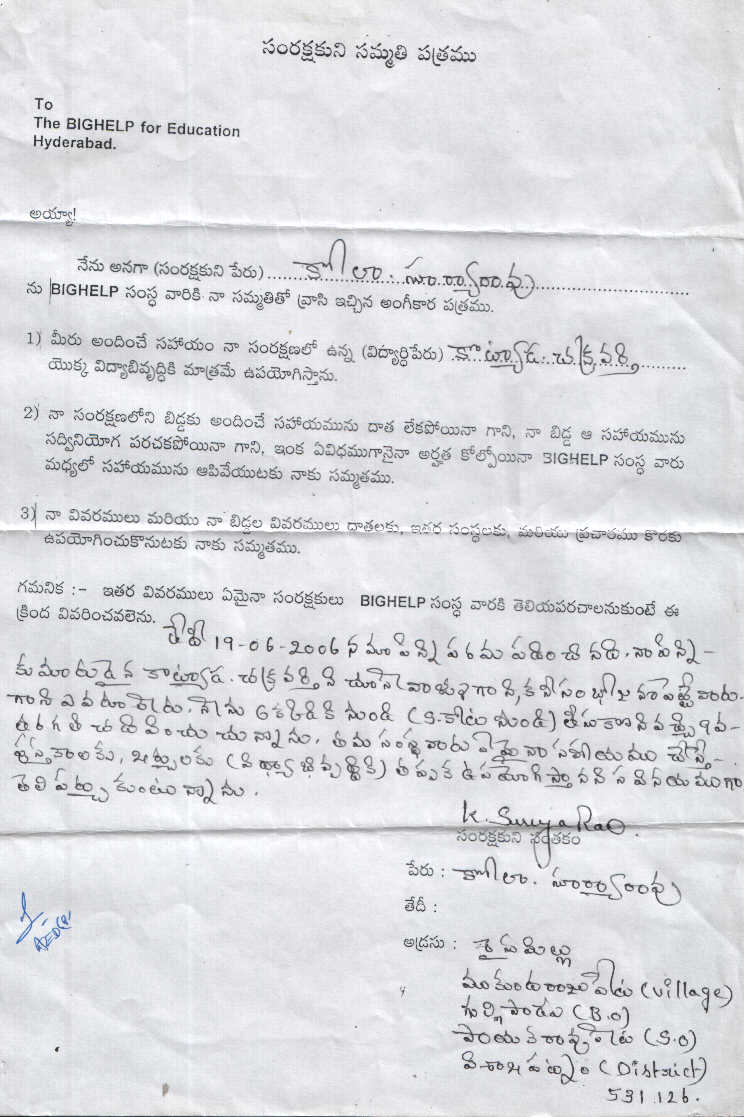 సంరక్షకుని సమ్మతి పత్రము
To
The BIGHELP for Education
Hyderabad.
అయ్యా!
నేను అనగా (సంరక్షకుని పేరు) కోలా. సూర్యారావు
ను BIGHELP సంస్థ వారికి నా సమ్మతితో వ్రాసి ఇచ్చిన అంగీకార పత్రము.
1) మీరు అందించే సహాయం నా సంరక్షణలో ఉన్న (విద్యార్థిపేరు) కొట్యాడ. చక్రవర్తి
యొక్క విద్యాభివృద్ధికి మాత్రమే ఉపయోగిస్తాను.
2) నా సంరక్షణలోని బిడ్డకు అందించే సహాయమును దాత లేకపోయినా గాని, నా బిడ్డ ఆ సహాయమును
సద్వినియోగ పరచకపోయినా గాని, ఇంక ఏవిధముగానైనా అర్హత కోల్పోయినా BIGHELP సంస్థ వారు
మధ్యలో సహాయమును ఆపివేయుటకు నాకు సమ్మతము.
3) నా వివరములు మరియు నా బిడ్డల వివరములు దాతలకు, ఇతర సంస్థలకు, మరియు ప్రచారము కొరకు
ఉపయోగించుకొనుటకు నాకు సమ్మతము.
గమనిక :- ఇతర వివరములు ఏమైనా సంరక్షకులు BIGHELP సంస్థ వారికి తెలియపరచాలనుకుంటే ఈ
క్రింద వివరించవలెను.
తేదీ 19-06-2006 న మా పిన్ని పరమపదించినది. నా పిన్ని-
కుమారుడైన కొట్యాడ. చక్రవర్తిని చూసే వారు
గాని ఎవరూ లేరు. నేను 6 నుండి (S.కోట నుండి) తీసుకొని వచ్చి 9వ-
తరగతి చదివించుచున్నాను. తమ సంస్థ వారు నా సహాయము చేస్తే-
పుస్తకాలకు, (విద్యాభివృద్ధికి) తప్పక ఉపయోగిస్తానని సవినయముగా
తెలిపుచ్చుకుంటున్నాను.
K. Surya Rao.
సంరక్షకుని సంతకం
పేరు : కోలా. సూర్యారావు
తేదీ :
అడ్రసు : రైస్ మిల్లు
ముకుందరాజుపేట (village)
(B.O)
పాయకరావుపేట (S.O)
విశాఖపట్నం (District)
531 126.